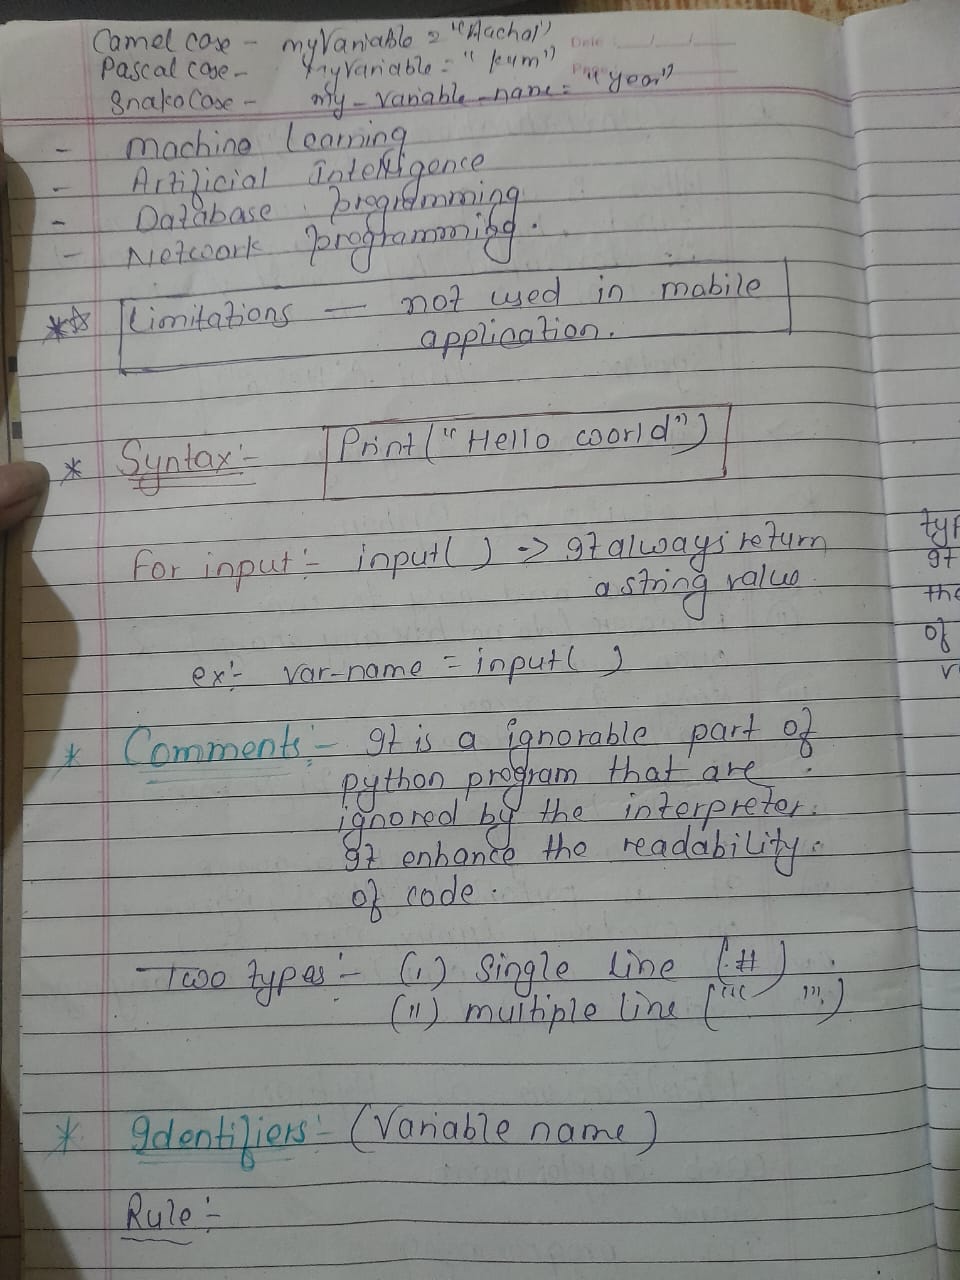 Camel case - myVariable = "Aachal"
Pascal case - MyVariable = "kum"
Snake Case - my_variable_name = "year"
Date : / /
Page
- Machine Learning
- Artificial Intelligence
- Database programming
- Network programming.
** Limitations — not used in mobile
application.
* Syntax :- Print("Hello world")
For input :- input( ) -> It always return
a string value.
ex :- var_name = input( )
* Comments :- It is a ignorable part of
python program that are
ignored by the interpreter.
It enhance the readability.
of code.
Two types :- (i) Single line (#)
(ii) multiple line (''' ''')
* Identifiers :- (Variable name)
Rule :-
typ
It
the
of
v